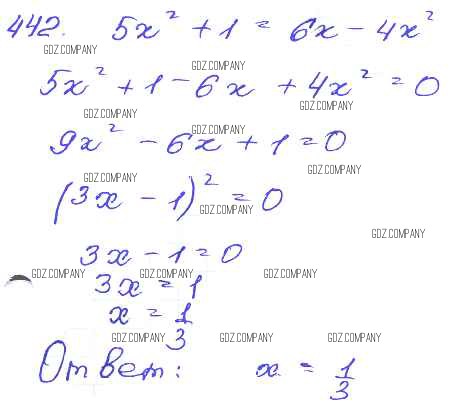 442. 5x² + 1 = 6x - 4x²
GDZ.COMPANY
GDZ.COMPANY
5x² + 1 - 6x + 4x² = 0
GDZ.COMPANY
GDZ.COMPANY
GDZ.COMPANY
9x² - 6x + 1 = 0
GDZ.COMPANY
GDZ.COMPANY
(3x - 1)² = 0
GDZ.COMPANY
GDZ.COMPANY
3x - 1 = 0
GDZ.COMPANY GDZ.COMPANY GDZ.COMPANY
3x = 1
x = 1/3
GDZ.COMPANY GDZ.COMPANY GDZ.COMPANY
Ответ: x = 1/3